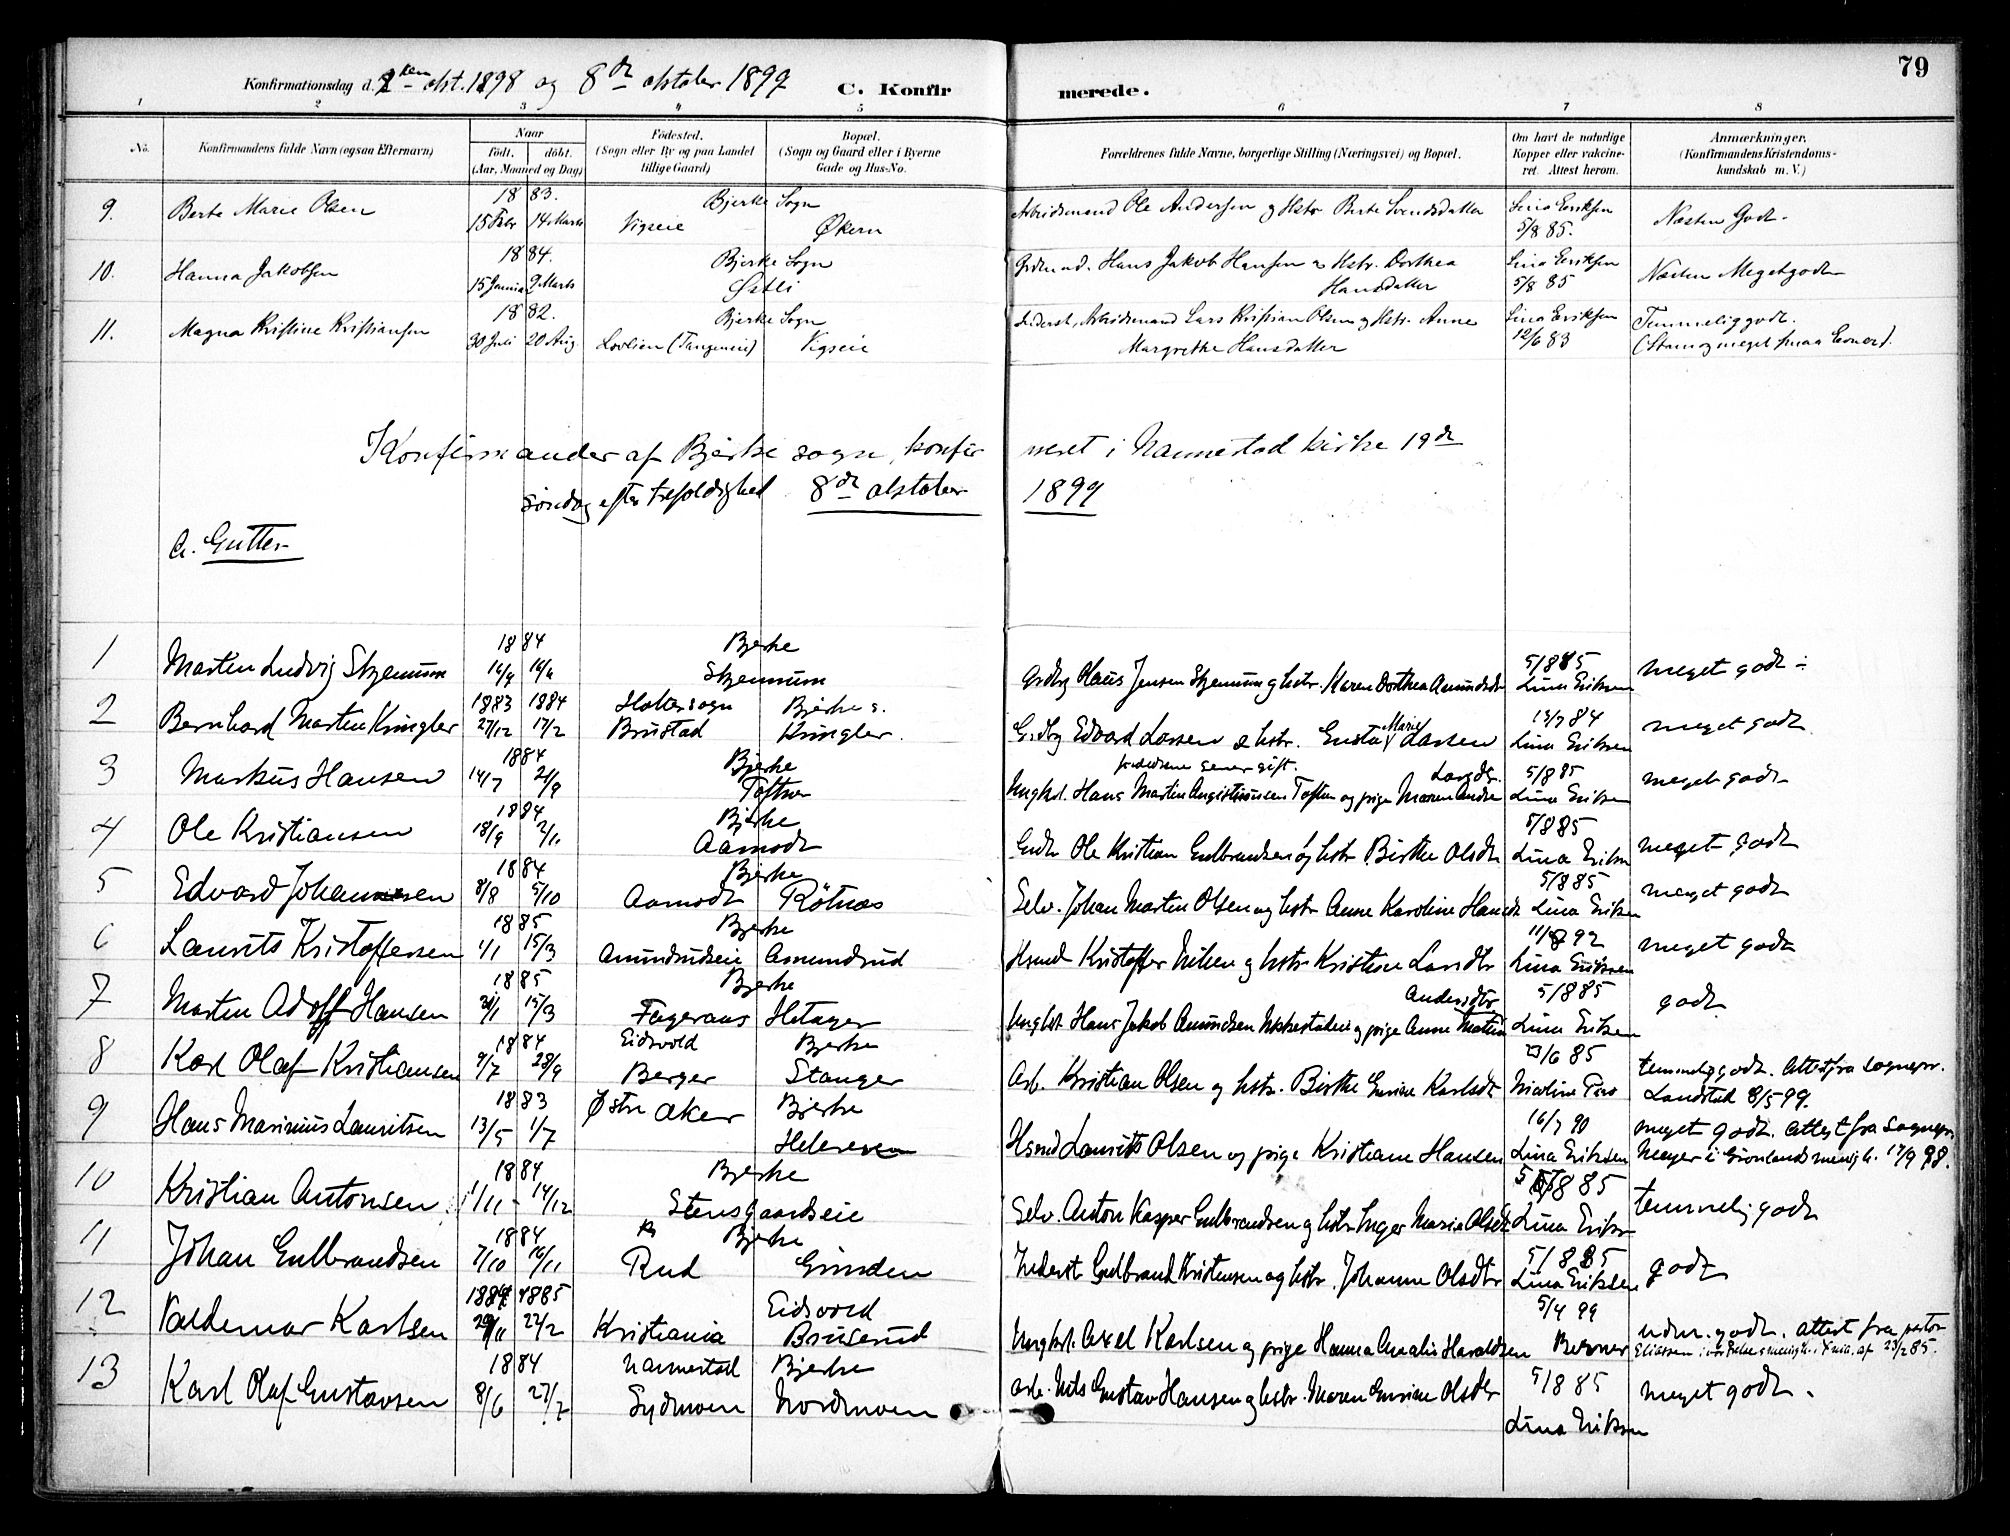 79
Konfirmationsdag d. 2den okt. 1898 og 8de oktober 1899 C. Konfirmerede.
1 2 3 4 5 6 7 8
No. Konfirmandens fulde Navn (ogsaa Efternavn) Naar født. døbt. (Aar, Maaned og Dag) Fødested. (Sogn eller By og paa Landet tillige Gaard) Bopæl. (Sogn og Gaard eller i Byerne Gade og Hus-No. Forældrenes fulde Navne, borgerlige Stilling (Næringsvei) og Bopæl. Om havt de naturlige Kopper eller vakcineret. Attest herom. Anmærkninger. (Konfirmandens Kristendomskundskab m. V.)
9. Berte Marie Olsen 1883. 15 Febr 14 Marts Bjerke Sogn Vigseie Økern Arbeidsmand Ole Andersen og Hstr Berte Svendsdatter Lina Eriksen 5/8 85. Næsten Godt.
10. Hanna Jakobsen 1884. 15 Januar 9 Marts Bjerke Sogn Hans Jakob Hansen Hstr. Dorthea Hansdatter Lina Eriksen 5/8 85 Næsten Megetgodt
11. Magna Kristine Kristiansen 1882. 30 Juli 20 Aug Bjerke Sogn Lovlien (Tangeneie) Vigseie Inderst, Arbeidsmand Lars Kristian Olsen og Hstr. Anne Margrethe Hansdatter Lina Eriksen 12/6 83 Temmelig godt.
Konfirmander af Bjerke sogn, konfirmeret i Nannestad kirke 19de
søndag efter trefoldighed 8de oktober 1899
a. Gutter
1 Martin Ludvig Skjennum 1884 14/4 Bjerke Skjennum Grdbg Olaus Jensen Skjennum og hstr. Karen Dorthea Amundsdtr 5/8 85 Lina Eriksen meget godt
2 Bernhard Martin Kringler 1883 27/12 1884 17/2 Holter sogn Brustad Bjerke s. Kringler. Grdbg Edvard Larsen & hstr. Gusta Marie Larsen 13/7 84 Lina Eriksen meget godt
3 Markus Hansen 1884 14/7 21/9 Bjerke Toftner forældrene senere gift. Ungkrl. Hans Martin Toften og pige Maren Andrea Larsdtr. 5/8 85 Lina Eriksen meget godt
4 Ole Kristiansen 1884 18/9 2/11 Bjerke Aamodt Ole Kristian Gulbrandsen og hstr Birthe Olsdtr 5/8 85 Lina Eriksen meget godt
5 Edvard Johannesen 1884 8/8 5/10 Bjerke Aamodt Rötnæs Selv. Johan Martin Olsen og hstr Anne Karoline Hansdtr 5/8 85 Lina Eriksen meget godt
6 Laurits Kristoffersen 1885 1/1 15/3 Bjerke Amundrudeie Amundrud Hsmd Kristoffer Nilsen og hstr Kristine Larsdtr 11/8 92 Lina Eriksen meget godt
7 Martin Adolf Hansen 1885 21/1 15/3 Bjerke Fageraas Hetager Ungkrl. Hans Jakob Amundsen og pige Anne Mathia Andersdtr 5/8 85 Lina Eriksen godt
8 Karl Olaf Kristiansen 1884 9/7 28/9 Eidsvold Berger Bjerke Stanger Arb. Kristian Olsen og hstr. Birthe Gurine Karlsdtr 23/6 85 Nicoline temmelig godt. Attest fra sognepr. Landstad 8/5 99.
9 Hans Marinius Lauritsen 1883 13/5 1/7 Østre Aker Bjerke Hsmd Laurits Olsen og pige Kristiane Hansen 16/7 90 Lina Eriksen meget godt. Attest fra sognepr. Meyer i Grønlands menigh. 17/9 98.
10 Kristian Antonsen 1884 1/11 14/12 Bjerke Stensgaardseie Selv. Anton Kasper Gulbrandsen og hstr Inger Marie Olsdtr 5/8 85 Lina Eriksen temmelig godt
11 Johan Gulbrandsen 1884 7/10 16/11 Bjerke Rud Grinden Inderst Gulbrand Kristensen og hstr. Johanne Olsdtr 5/8 85 Lina Eriksen godt
12 Valdemar Karlsen 1884 29/11 1885 22/2 Kristiania Eidsvold Bruserud Ungkrl. Axel Karlsen og pige Hanna Amalie Haraldsen 5/4 99 Berner udm. godt. Attest fra pastor Eliassen i vor frelsers menigh. i Xnia. af 23/2 85.
13 Karl Olaf Gustavsen 1884 8/6 27/7 Nannestad Sydmoen Bjerke Nordmoen arb. Nils Gustav Hansen og hstr. Maren Gurine Olsdtr 5/8 85 Lina Eriksen meget godt.